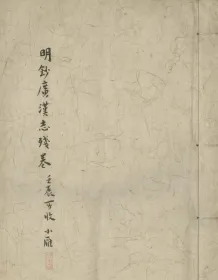 明鈔廣漢志殘卷
壬辰可收 小雁